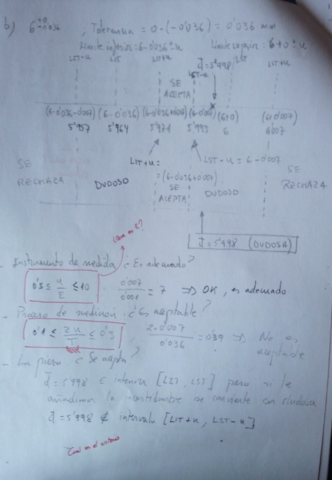 b) 6 +0 -0'036 , Tolerancia = 0-(-0'036) = 0'036 mm
Límite inferior: 6-0'036±u Límite superior: 6+0±u
LIT-u LIT LIT+u LST-u d̄=5'998 LST
SE ACEPTA
(6-0'036-0'007) (6-0'036) (6-0'036+0'007) (6-0'007) (6+0) (6+0'007)
5'957 5'964 5'971 5'993 6 6'007
LIT+u= LST-u = 6-0'007
(6-0'036+0'007)
SE RECHAZA DUDOSO SE ACEPTA DUDOSO SE RECHAZA
d̄=5'998 (DUDOSA)
- Instrumento de medida ¿Es adecuado?
0'5 ≤ u/E ≤ 10 0'007/0'001 = 7 ⇒ OK, es adecuado
- Proceso de medición ¿Es aceptable?
0'1 ≤ 2u/T ≤ 0'5 2·0'007/0'036 = 0'39 ⇒ No es aceptable
- La pieza ¿Se acepta?
d̄=5'998 ∈ intervalo [LIT, LST] pero si le
añadimos la incertidumbre se convierte en dudosa
d̄=5'998 ∉ intervalo [LIT+u, LST-u]